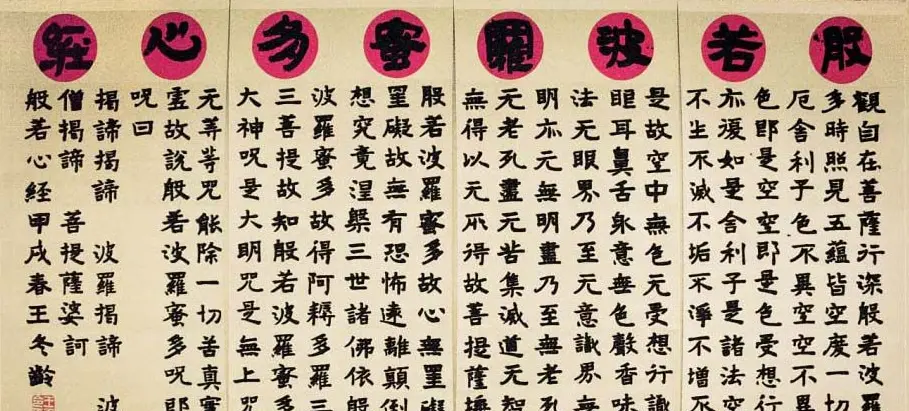 般若波羅蜜多心經
觀自在菩薩行深般若波羅
多時照見五蘊皆空度一切
厄舍利子色不異空空不異
色即是空空即是色受想行
亦復如是舍利子是諸法空
不生不滅不垢不淨不增不
是故空中無色无受想行識
眼耳鼻舌身意無色聲香味
法无眼界乃至无意識界無
明亦无無明盡乃至無老死
无老死盡无苦集滅道无智
無得以无所得故菩提薩埵
般若波羅蜜多故心無罣礙
罣礙故無有恐怖遠離顛倒
想究竟涅槃三世諸佛依般
波羅蜜多故得阿耨多羅三
三菩提故知般若波羅蜜多
大神咒是大明咒是無上咒
无等等咒能除一切苦真實
虛故說般若波羅蜜多咒即
咒曰
揭諦揭諦 波羅揭諦 波
僧揭諦 菩提薩婆訶
般若心經甲戌春王冬齡